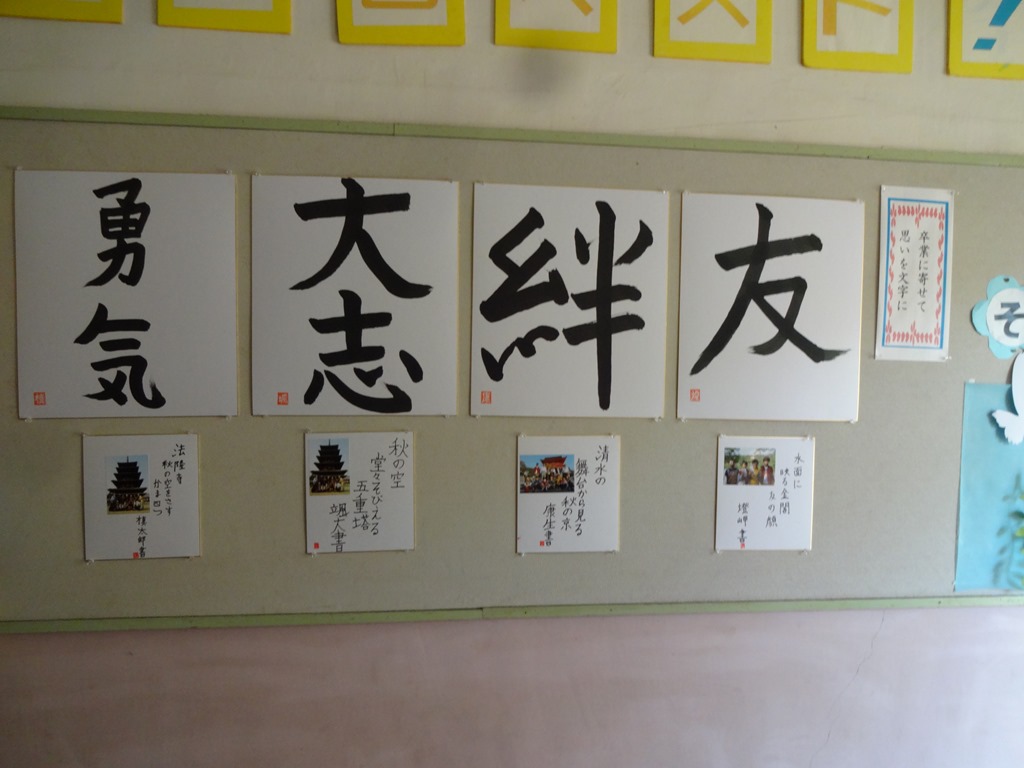 勇気
大志
絆
友
卒業に寄せて
思いを文字に
そ
法隆寺
秋の空をさす
秋の空
堂々そびえる
五重塔
颯大書
清水の
舞台から見る
秋の京
康生書
水面に
映る金閣
友の顔